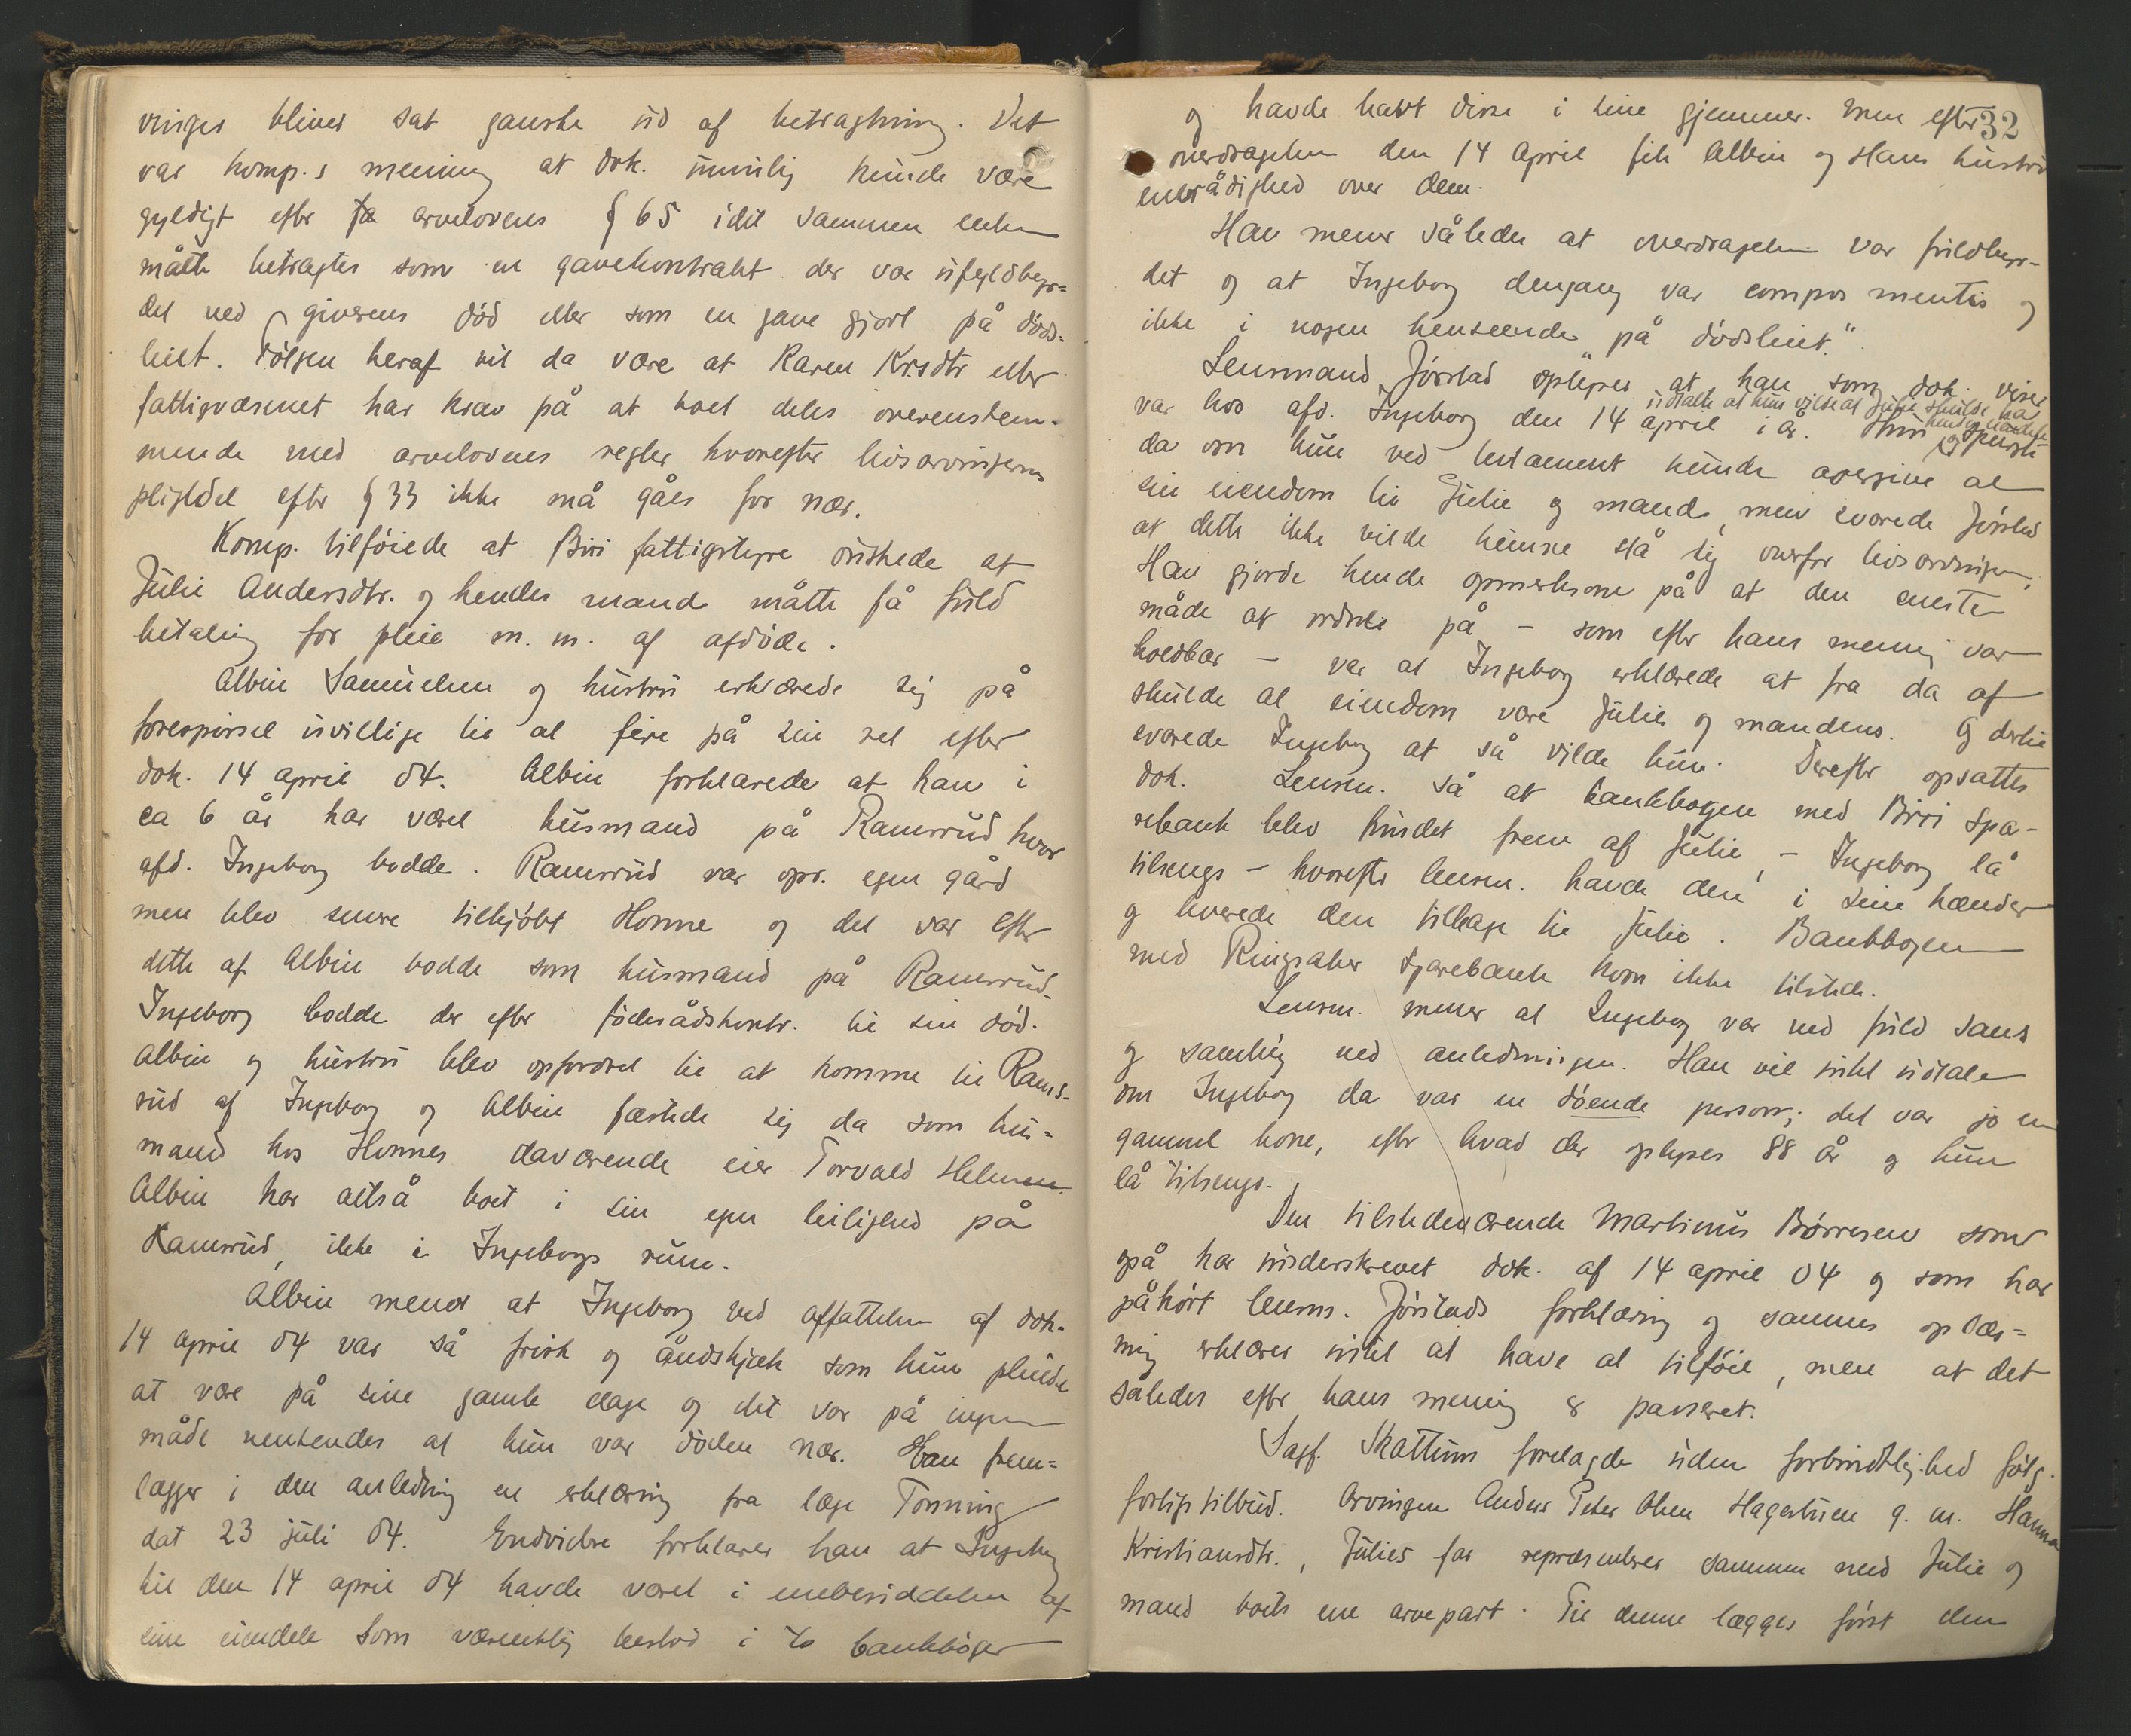 vinges bliver sat ganske ud af betragtning. Det
var komp.s mening at dok. umulig kunde være
gyldigt efter fa arvelovens § 65 idet sammen enten
måtte betragtes som en gavekontrakt der var ufuldbyr=
det ved giverens død eller som en gave gjort på døds=
leiet. Følgen heraf vil da være at Karen Krsdtr eller
fattigvæsenet har krav på at boet deles overenstem-
mende med arvelovens regler hvorefter livsarvingernes
pligtdel efter § 33 ikke må gåes for nær.
Komp. tilføiede at Biri fattigstyre ønskede at
Julie Andersdtr. og hendes mand måtte få fuld
betaling for pleie m. m. af afdøde.
Albin Samuelsen og hustru erklærede sig på
forespørsel uvillige til at fire på sin ret efter
dok. 14 april 04. Albin forklarede at han i
ca 6 år har været husmand på Ramsrud hvor
afd. Ingeborg bodde. Ramsrud var opr. egen gård
men blev senere tilkjøbt Honne og det var efter
dette at Albin bodde som husmand på Ramsrud.
Ingeborg bodde der efter føderådskontr. til sin død.
Albin og hustru blev opfordret til at komme til Rams-
rud af Ingeborg og Albin fæstede sig da som hus=
mand hos Honnes daværende eier Torvald Helmen.
Albin har altså boet i sin egen leilighed på
Ramsrud, ikke i Ingeborgs rum.
Albin mener at Ingeborg ved affattelsen af dok.
14 april 04 var så frisk og åndskjæk som hun pleiede
at være på sine gamle dage og det var på ingen
måde ventendes at hun var døden nær. Han frem=
lægger i den anledning en erklæring fra læge Tonning
dat 23 juli 04. Endvidere forklarer han at Ingeborg
til den 14 april 04 havde været i enebesiddelsen af
sine eiendele som væsentlig bestod i to bankbøger
32
og havde havt disse i sine gjemmer. Men efter
overdragelsen den 14 april fik Albin og Hans hustru
enerådighed over dem.
Han mener således at overdragelsen var fuldbyr-
det og at Ingeborg dengang var compos mentis og
ikke i nogen henseende "på dødsleiet."
Lensmand Jørstad oplyser at han som dok. viser
var hos afd. Ingeborg den 14 april i år. Hun udtalte at hun vilde at Julie skulde ha og spurgte
da om hun ved testament kunde overgive al
sin eiendom til Julie og mand, men svarede Jørstad
at dette ikke vilde kunne stå sig overfor livsarvinger.
Han gjorde hende opmerksom på at den eneste
måde at ordne på – som efter hans mening var
holdbar – var at Ingeborg erklærede at fra da af
skulde al eiendom være Julies og mandens. Og dertil
svarede Ingeborg at så vilde hun. Derefter opsattes
dok. Lensm. så at bankbogen med Biri spa-
rebank blev fundet frem af Julie, – Ingeborg lå
tilsengs – hvorefter lensm. havde den i sine hænder
og leverede den tilbage til Julie. Bankbogen
med Ringsaker sparebank kom ikke tilstede.
Lensm. mener at Ingeborg var ved fuld sans
og samling ved anledningen. Han vil intet udtale
om Ingeborg da var en døende person; det var jo en
gammel kone, efter hvad der oplyses 88 år og hun
lå tilsengs.
Den tilstedeværende Martinus Børresen som
også har underskrevet dok. af 14 april 04 og som har
påhørt lensm. Jørstads forklaring og sammes oplæs=
ning erklærer intet at have at tilføie, men at det
således efter hans mening er passeret.
Sagf. Skattum forelagde uden forbindtlighed følg.
forligstilbud. Arvingen Anders Peter Olsen Hagestuen g. m. Hanna
Kristiansdtr., Julies far repræsenterer sammen med Julie og
mand boets ene arvepart. Til denne lægges først den